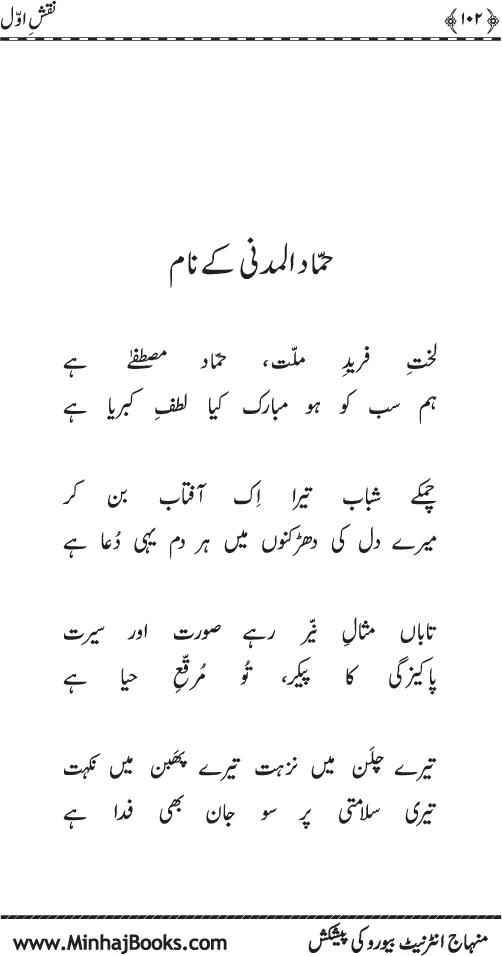 نقشِ اوّل
﴿۱۰۲﴾
حمّاد المدنی کے نام
لختِ فریدِ ملّت، حمّاد مصطفیٰ ہے
ہم سب کو ہو مبارک کیا لطفِ کبریا ہے
چمکے شباب تیرا اِک آفتاب بن کر
میرے دل کی دھڑکنوں میں ہر دم یہی دُعا ہے
تاباں مثالِ نیّر رہے صورت اور سیرت
پاکیزگی کا پیکر، تُو مُرقّعِ حیا ہے
تیرے چلَن میں نزہت تیرے پھَبن میں نکہت
تیری سلامتی پر سو جان بھی فدا ہے
منہاج انٹرنیٹ بیورو کی پیشکش
www.MinhajBooks.com